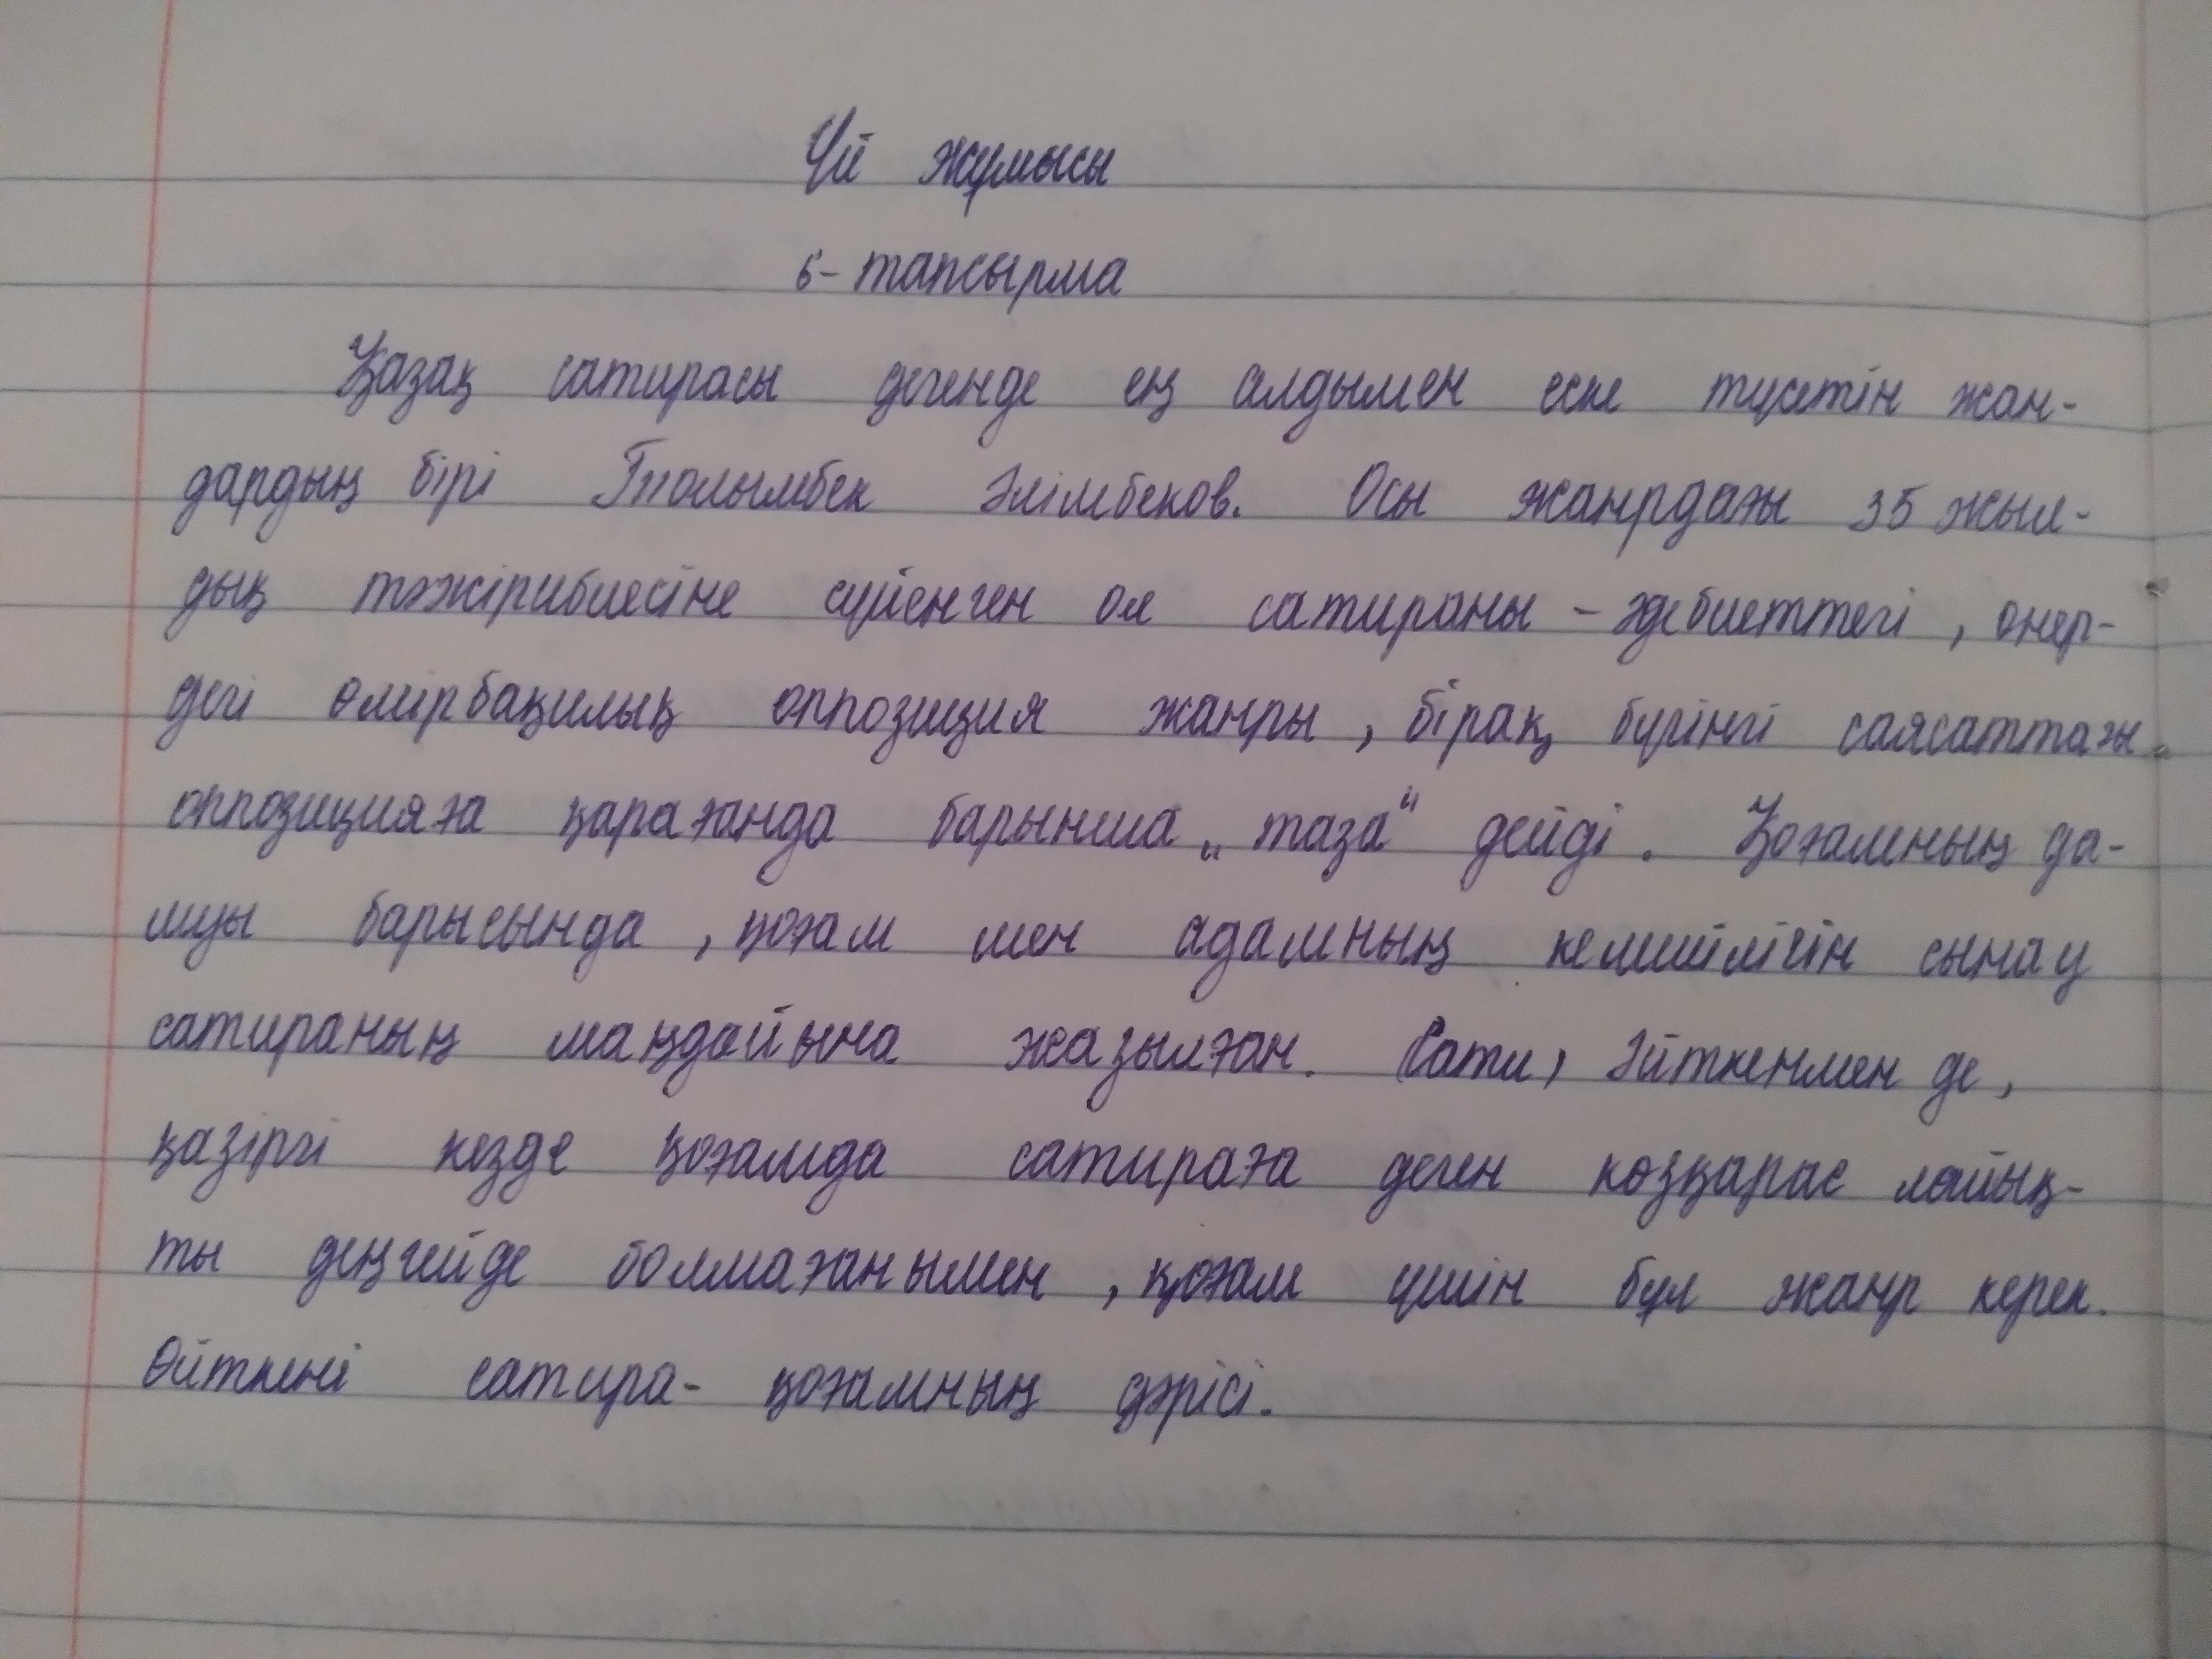 Үй жұмысы
6-тапсырма
Қазақ сатирасы дегенде ең алдымен еске түсетін жан-
дардың бірі Толымбек Әлімбеков. Осы жанрдағы 35 жыл-
дық тәжірибиесіне сүйенген ол сатираны - әдебиеттегі, өнер-
дегі өмірбақилық оппозиция жанры, бірақ бүгінгі саясаттағы
оппозицияға қарағанда барынша „таза“ дейді. Қоғамның да-
муы барысында, қоғам мен адамның кемшілігін сынау
сатираның маңдайына жазылған. (Сати) Әйткенмен де,
қазіргі кезде қоғамда сатираға деген көзқарас лайық-
ты деңгейде болмағанымен, қоғам үшін бұл жанр керек.
Өйткені сатира- қоғамның дәрісі.